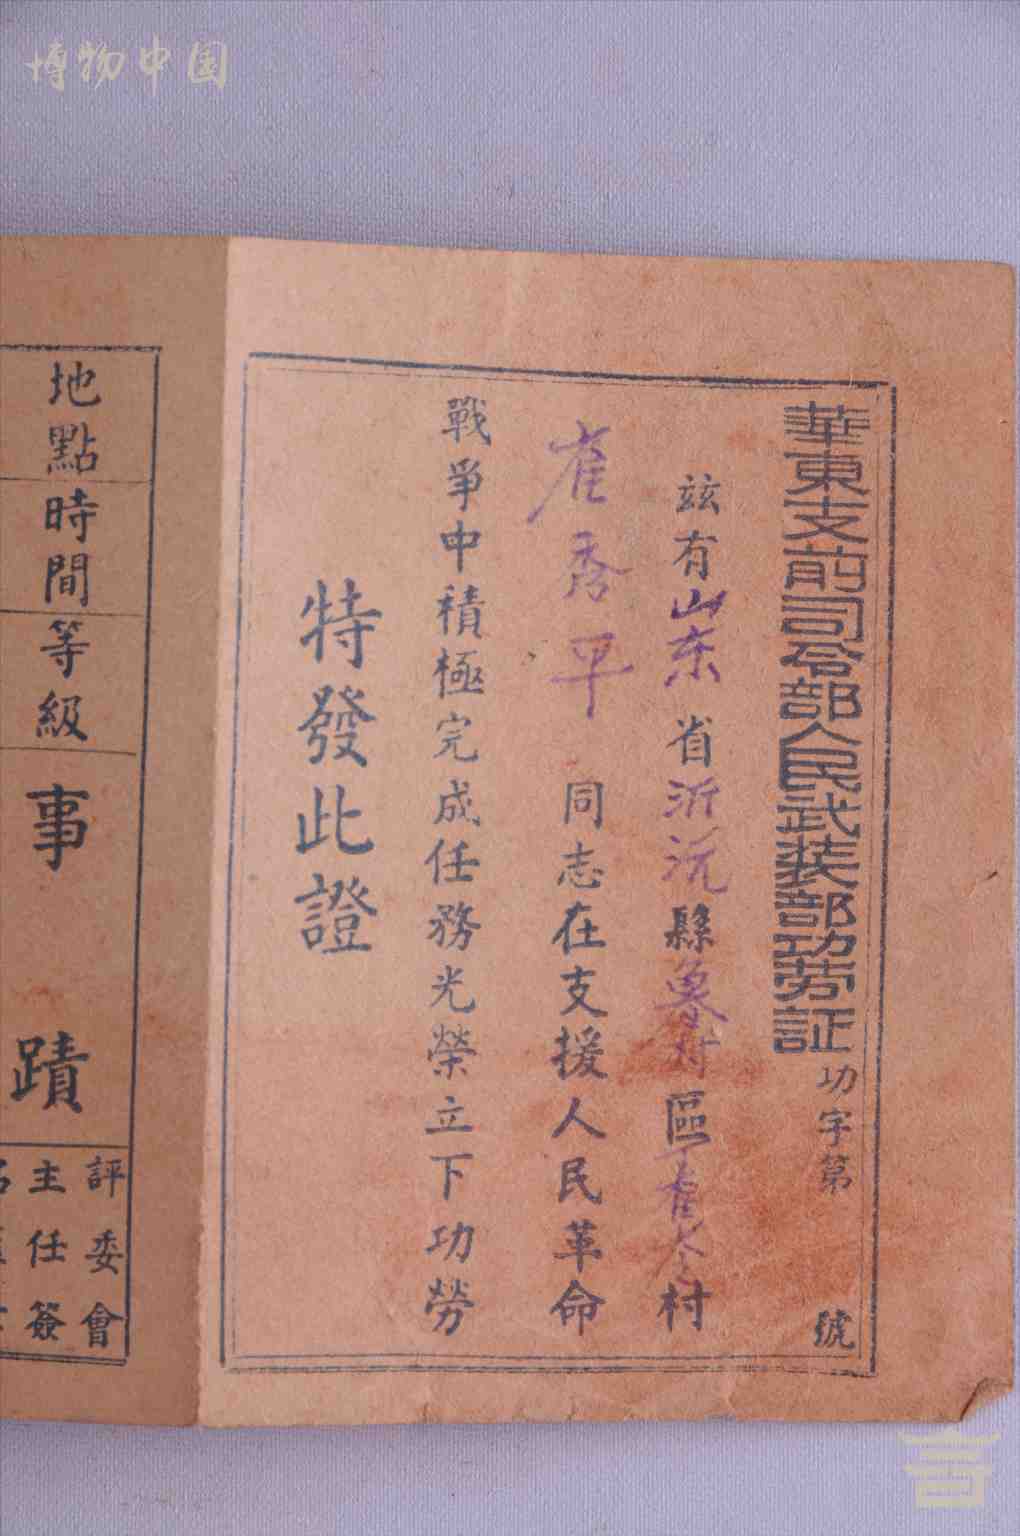 博物中国
華東支前司令部人民武装部功劳証 功字第 號
茲有山东省沂沅縣魯村區崔 村
崔秀平 同志在支援人民革命
戰爭中積極完成任務光榮立下功勞
特發此證
地點
時間
等級
事蹟
評委會
主任簽